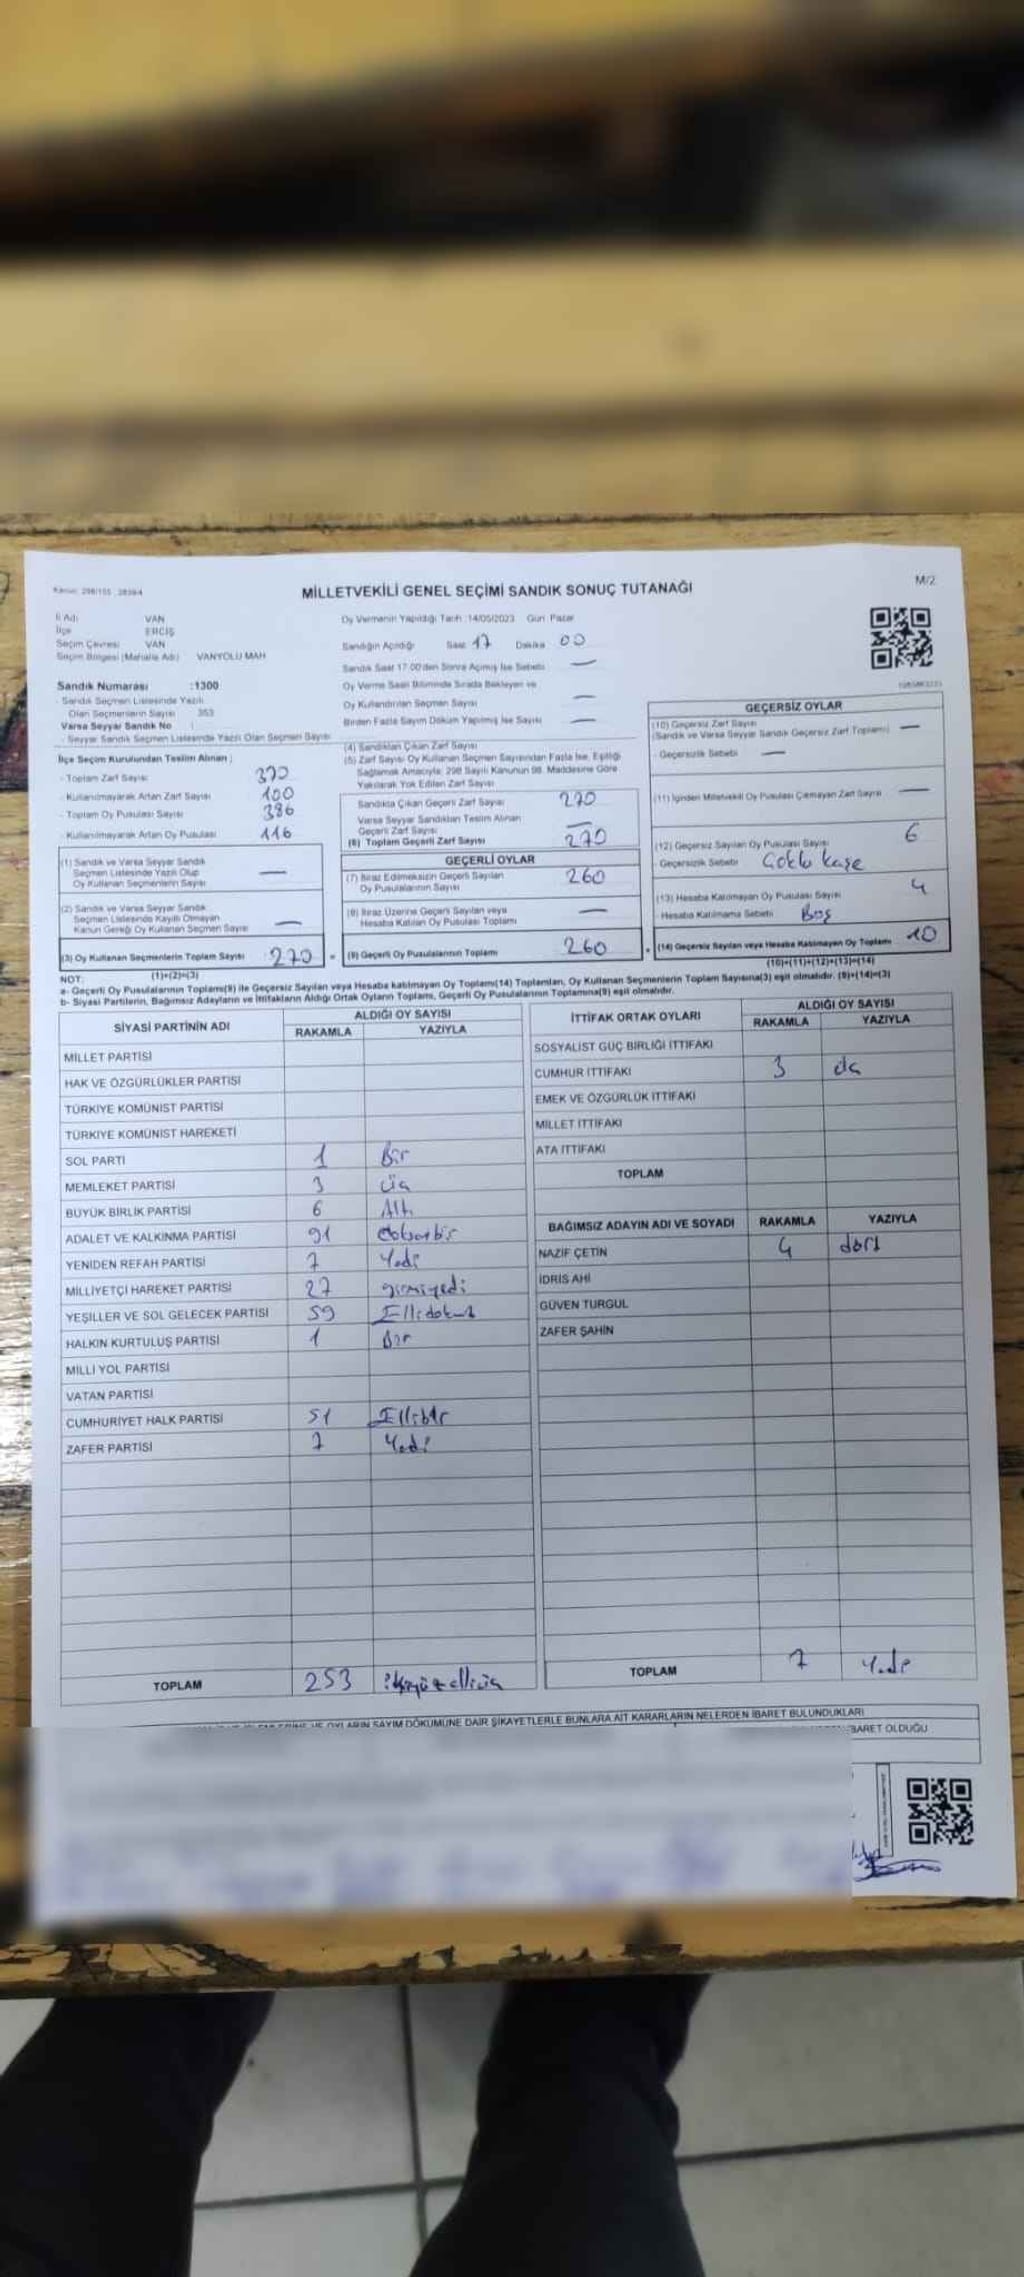 MİLLETVEKİLİ GENEL SEÇİMİ SANDIK SONUÇ TUTANAĞI
M/2
İl Adı VAN
İlçe ERCİŞ
Seçim Çevresi VAN
Seçim Bölgesi (Mahalle Adı) VANYOLU MAH
Sandık Numarası :1300
- Sandık Seçmen Listesinde Yazılı
Olan Seçmenlerin Sayısı 353
Varsa Seyyar Sandık No :
- Seyyar Sandık Seçmen Listesinde Yazılı Olan Seçmen Sayısı
Oy Vermenin Yapıldığı Tarih :14/05/2023 Gün: Pazar
Sandığın Açıldığı Saat 17 Dakika 00
Sandık Saat 17:00'den Sonra Açılmış İse Sebebi —
Oy Verme Saati Bitiminde Sırada Bekleyen ve
Oy Kullandırılan Seçmen Sayısı —
Birden Fazla Sayım Döküm Yapılmış İse Sayısı —
İlçe Seçim Kurulundan Teslim Alınan ;
- Toplam Zarf Sayısı 370
- Kullanılmayarak Artan Zarf Sayısı 100
- Toplam Oy Pusulası Sayısı 386
- Kullanılmayarak Artan Oy Pusulası 116
(1) Sandık ve Varsa Seyyar Sandık
Seçmen Listesinde Yazılı Olup
Oy Kullanan Seçmenlerin Sayısı —
(2) Sandık ve Varsa Seyyar Sandık
Seçmen Listesinde Kayıtlı Olmayan
Kanun Gereği Oy Kullanan Seçmen Sayısı —
(3) Oy Kullanan Seçmenlerin Toplam Sayısı 270
(1)+(2)=(3)
(4) Sandıktan Çıkan Zarf Sayısı
(5) Zarf Sayısı Oy Kullanan Seçmen Sayısından Fazla İse, Eşitliği
Sağlamak Amacıyla, 298 Sayılı Kanunun 98. Maddesine Göre
Yakılarak Yok Edilen Zarf Sayısı
Sandıkta Çıkan Geçerli Zarf Sayısı 270
Varsa Seyyar Sandıktan Teslim Alınan
Geçerli Zarf Sayısı —
(6) Toplam Geçerli Zarf Sayısı 270
GEÇERLİ OYLAR
(7) İtiraz Edilmeksizin Geçerli Sayılan
Oy Pusulalarının Sayısı 260
(8) İtiraz Üzerine Geçerli Sayılan veya
Hesaba Katılan Oy Pusulası Toplamı —
(9) Geçerli Oy Pusulalarının Toplamı 260
GEÇERSİZ OYLAR
(10) Geçersiz Zarf Sayısı
(Sandık ve Varsa Seyyar Sandık Geçersiz Zarf Toplamı) —
- Geçersizlik Sebebi —
(11) İçinden Milletvekili Oy Pusulası Çıkmayan Zarf Sayısı —
(12) Geçersiz Sayılan Oy Pusulası Sayısı 6
- Geçersizlik Sebebi Çoklu kaşe
(13) Hesaba Katılmayan Oy Pusulası Sayısı 4
- Hesaba Katılmama Sebebi Boş
(14) Geçersiz Sayılan veya Hesaba Katılmayan Oy Toplamı 10
(10)+(11)+(12)+(13)=(14)
NOT:
a- Geçerli Oy Pusulalarının Toplamı(9) ile Geçersiz Sayılan veya Hesaba katılmayan Oy Toplamı(14) Toplamları, Oy Kullanan Seçmenlerin Toplam Sayısına(3) eşit olmalıdır. (9)+(14)=(3)
b- Siyasi Partilerin, Bağımsız Adayların ve İttifakların Aldığı Ortak Oyların Toplamı, Geçerli Oy Pusulalarının Toplamına(9) eşit olmalıdır.
SİYASİ PARTİNİN ADI ALDIĞI OY SAYISI
RAKAMLA YAZIYLA
MİLLET PARTİSİ
HAK VE ÖZGÜRLÜKLER PARTİSİ
TÜRKİYE KOMÜNİST PARTİSİ
TÜRKİYE KOMÜNİST HAREKETİ
SOL PARTİ 1 Bir
MEMLEKET PARTİSİ 3 üç
BÜYÜK BİRLİK PARTİSİ 6 Altı
ADALET VE KALKINMA PARTİSİ 91 doksanbir
YENİDEN REFAH PARTİSİ 7 Yedi
MİLLİYETÇİ HAREKET PARTİSİ 27 yirmiyedi
YEŞİLLER VE SOL GELECEK PARTİSİ 59 Ellidokuz
HALKIN KURTULUŞ PARTİSİ 1 Bir
MİLLİ YOL PARTİSİ
VATAN PARTİSİ
CUMHURİYET HALK PARTİSİ 51 Ellibir
ZAFER PARTİSİ 7 Yedi
TOPLAM 253 ikiyüzelliüç
İTTİFAK ORTAK OYLARI ALDIĞI OY SAYISI
RAKAMLA YAZIYLA
SOSYALİST GÜÇ BİRLİĞİ İTTİFAKI
CUMHUR İTTİFAKI 3 üç
EMEK VE ÖZGÜRLÜK İTTİFAKI
MİLLET İTTİFAKI
ATA İTTİFAKI
TOPLAM
BAĞIMSIZ ADAYIN ADI VE SOYADI RAKAMLA YAZIYLA
NAZİF ÇETİN 4 dört
İDRİS AHİ
GÜVEN TURGUL
ZAFER ŞAHİN
TOPLAM 7 Yedi
OYLARIN SAYIM DÖKÜMÜNE DAİR ŞİKAYETLERLE BUNLARA AİT KARARLARIN NELERDEN İBARET BULUNDUKLARI
İBARET OLDUĞU